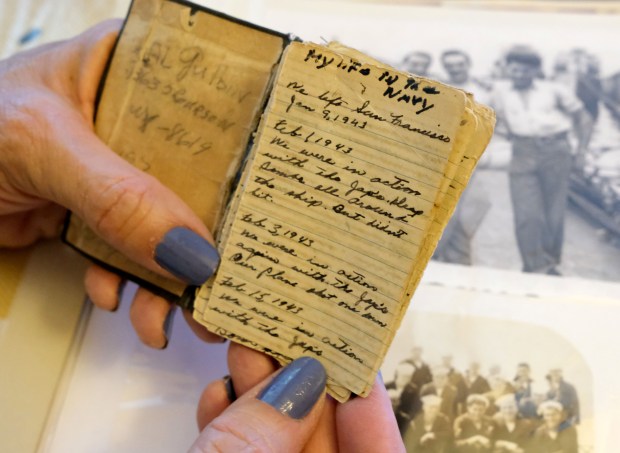 Gulbin
-8619
My life in the
NAVY
We left San Francisco
Jan 9, 1943
Feb. 1, 1943
We were in action
with the Japs.
Bombs all around
the ship. But didnt
hit.
Feb. 3, 1943
We were in action
again with the Japs
Our plane shot one down
Feb. 15, 1943
We were in action
with the Japs